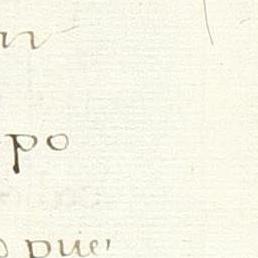 n
po
o pue